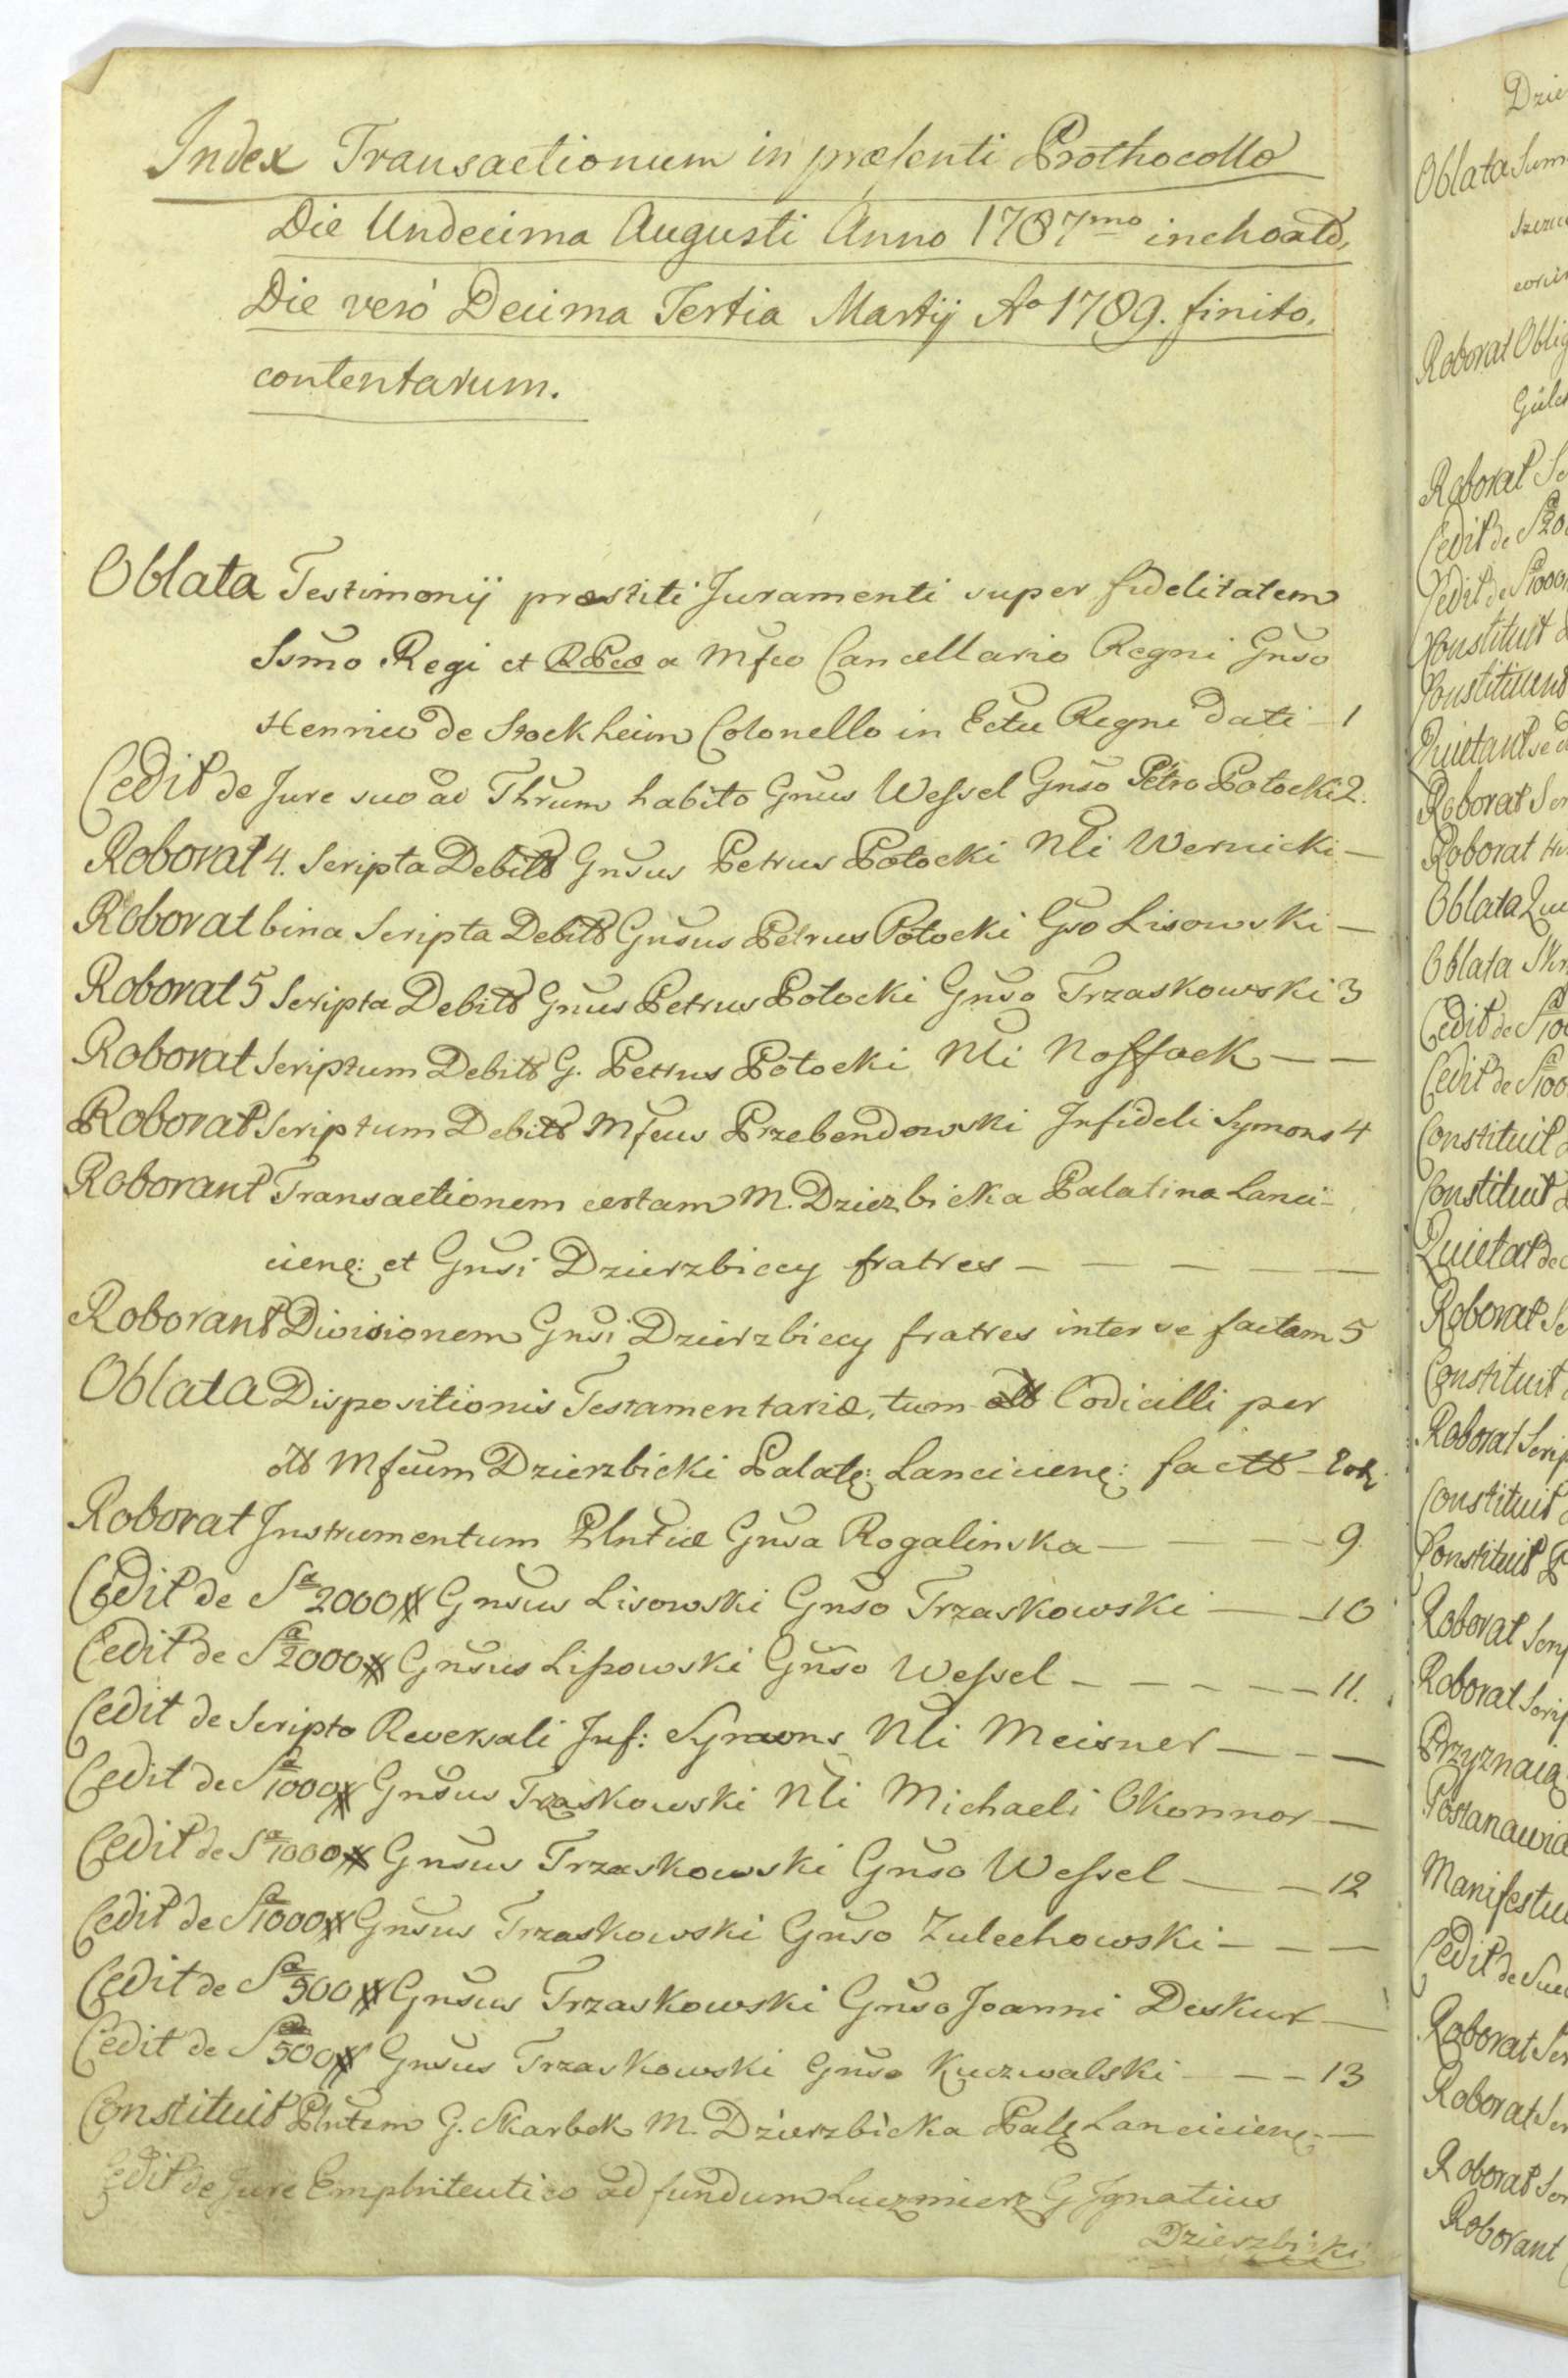 Index Transactionum in præsenti Prothocollo
Die Undecima Augusti Anno 1787mo inchoato,
Die veró Decima Tertia Martij Ao 1789. finito,
contentarum.
Oblata Testimonij præstiti Juramenti super fidelitatem
Ssmo Regi et RPcæ a Mfco Cancellario Regni Gnso
Henrico de Stockheim Colonello in Ectu Regni dati – 1
Cedit de Jure suo ad Thrum habito Gnus Wessel Gnso Petro Potocki 2.
Roborat 4. Scripta Debiti Gnsus Petrus Potocki Nli Wernicki –
Roborat bina Scripta Debiti Gnsus Petrus Potocki Gso Lisowski –
Roborat 5 Scripta Debiti Gnus Petrus Potocki Gnso Trzaskowski 3
Roborat Scriptum Debiti G. Petrus Potocki Nli Noffock – –
Roborat Scriptum Debiti Mfcus Przebendowski Infideli Symons 4
Roborant Transactionem certam M. Dzierzbicka Palatina Lanci-
cienę: et Gnsi Dzierzbiccy fratres – – – – –
Roborant Divisionem Gnsi Dzierzbiccy fratres inter se factam 5
Oblata Dispositionis Testamentariæ, tum Codicilli per
Mfcum Dzierzbicki Palatę: Lancicienę: factt –
Roborat Instrumentum Plntiæ Gnsa Rogalinska – – – – 9.
Cedit de Sa 2000 # Gnsus Lisowski Gnso Trzaskowski – – 10
Cedit de Sa 2000 # Gnsus Lissowski Gnso Wessel – – – – – 11.
Cedit de Scripto Reversali Inf: Symons Nli Meisner – – –
Cedit de Sa 1000 # Gnsus Traskowski Nli Michaeli Okonnor –
Cedit de Sa 1000 # Gnsus Trzaskowski Gnso Wessel – – 12
Cedit de Sa 1000 # Gnsus Trzaskowski Gnso Zulechowski – – –
Cedit de Sa 500 # Gnsus Trzaskowski Gnso Joanni Deskur –
Cedit de Sa 500 # Gnsus Trzaskowski Gnso Kuczwalski – – – 13
Constituit Plntem G. Skarbek M. Dzierzbicka Palę Lancicienę: –
Cedit de Jure Emphiteutico ad fundum Luczmierz G Ignatius
Dzierzbicki
Oblata
Roborat
Roborat
Cedit de
Cedit de
Constituit
Constituunt
Quietant se
Roborat
Roborat
Oblata
Oblata
Cedit de
Cedit de
Constituit
Constituit
Quietat de
Roborat
Constituit
Roborat
Constituit
Constituit
Roborat
Roborat
Przyznaią
Manifestu
Cedit de
Roborat
Roborat
Roborat
Roborant